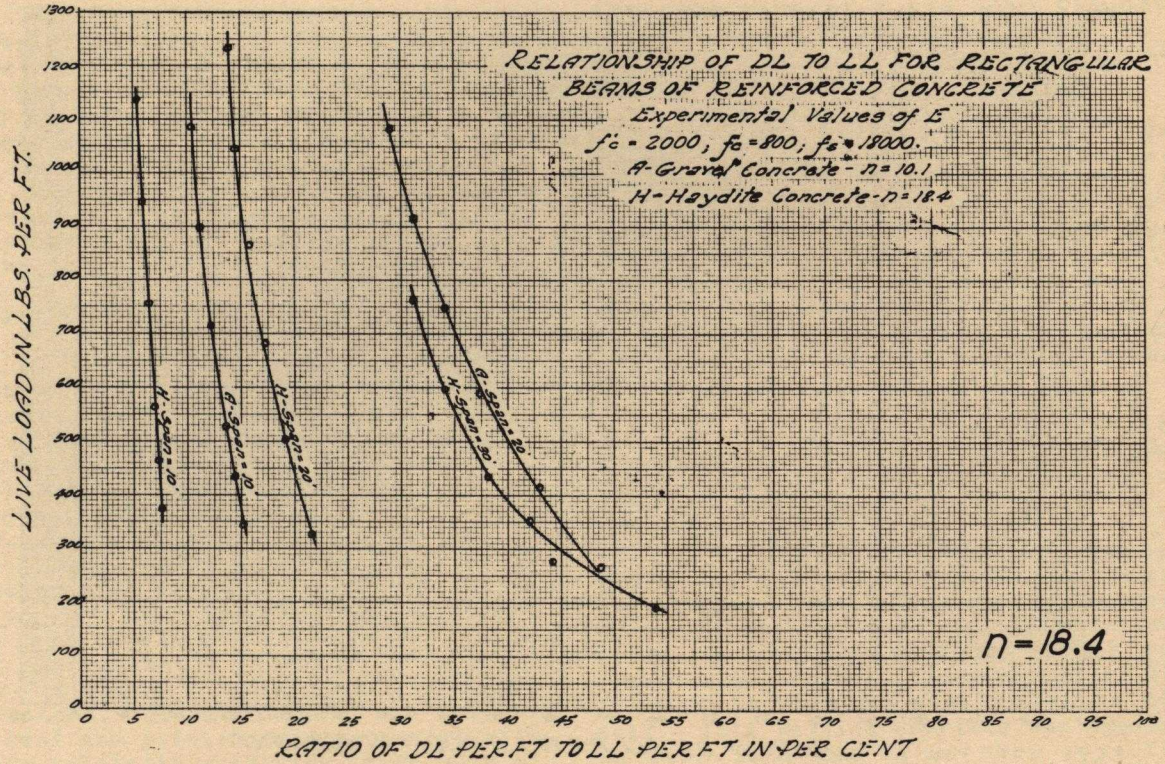 RELATIONSHIP OF DL TO LL FOR RECTANGULAR
BEAMS OF REINFORCED CONCRETE
Experimental Values of E
f'c = 2000; fc = 800; fs = 18000.
A-Gravel Concrete - n = 10.1
H-Haydite Concrete - n = 18.4
LIVE LOAD IN LBS. PER FT.
1300
1200
1100
1000
900
800
700
600
500
400
300
200
100
0
H-Span=10'
A-Span=10'
H-Span=20'
H-Span=30'
A-Span=20
n=18.4
0 5 10 15 20 25 30 35 40 45 50 55 60 65 70 75 80 85 90 95 100
RATIO OF DL PER FT TO LL PER FT IN PER CENT